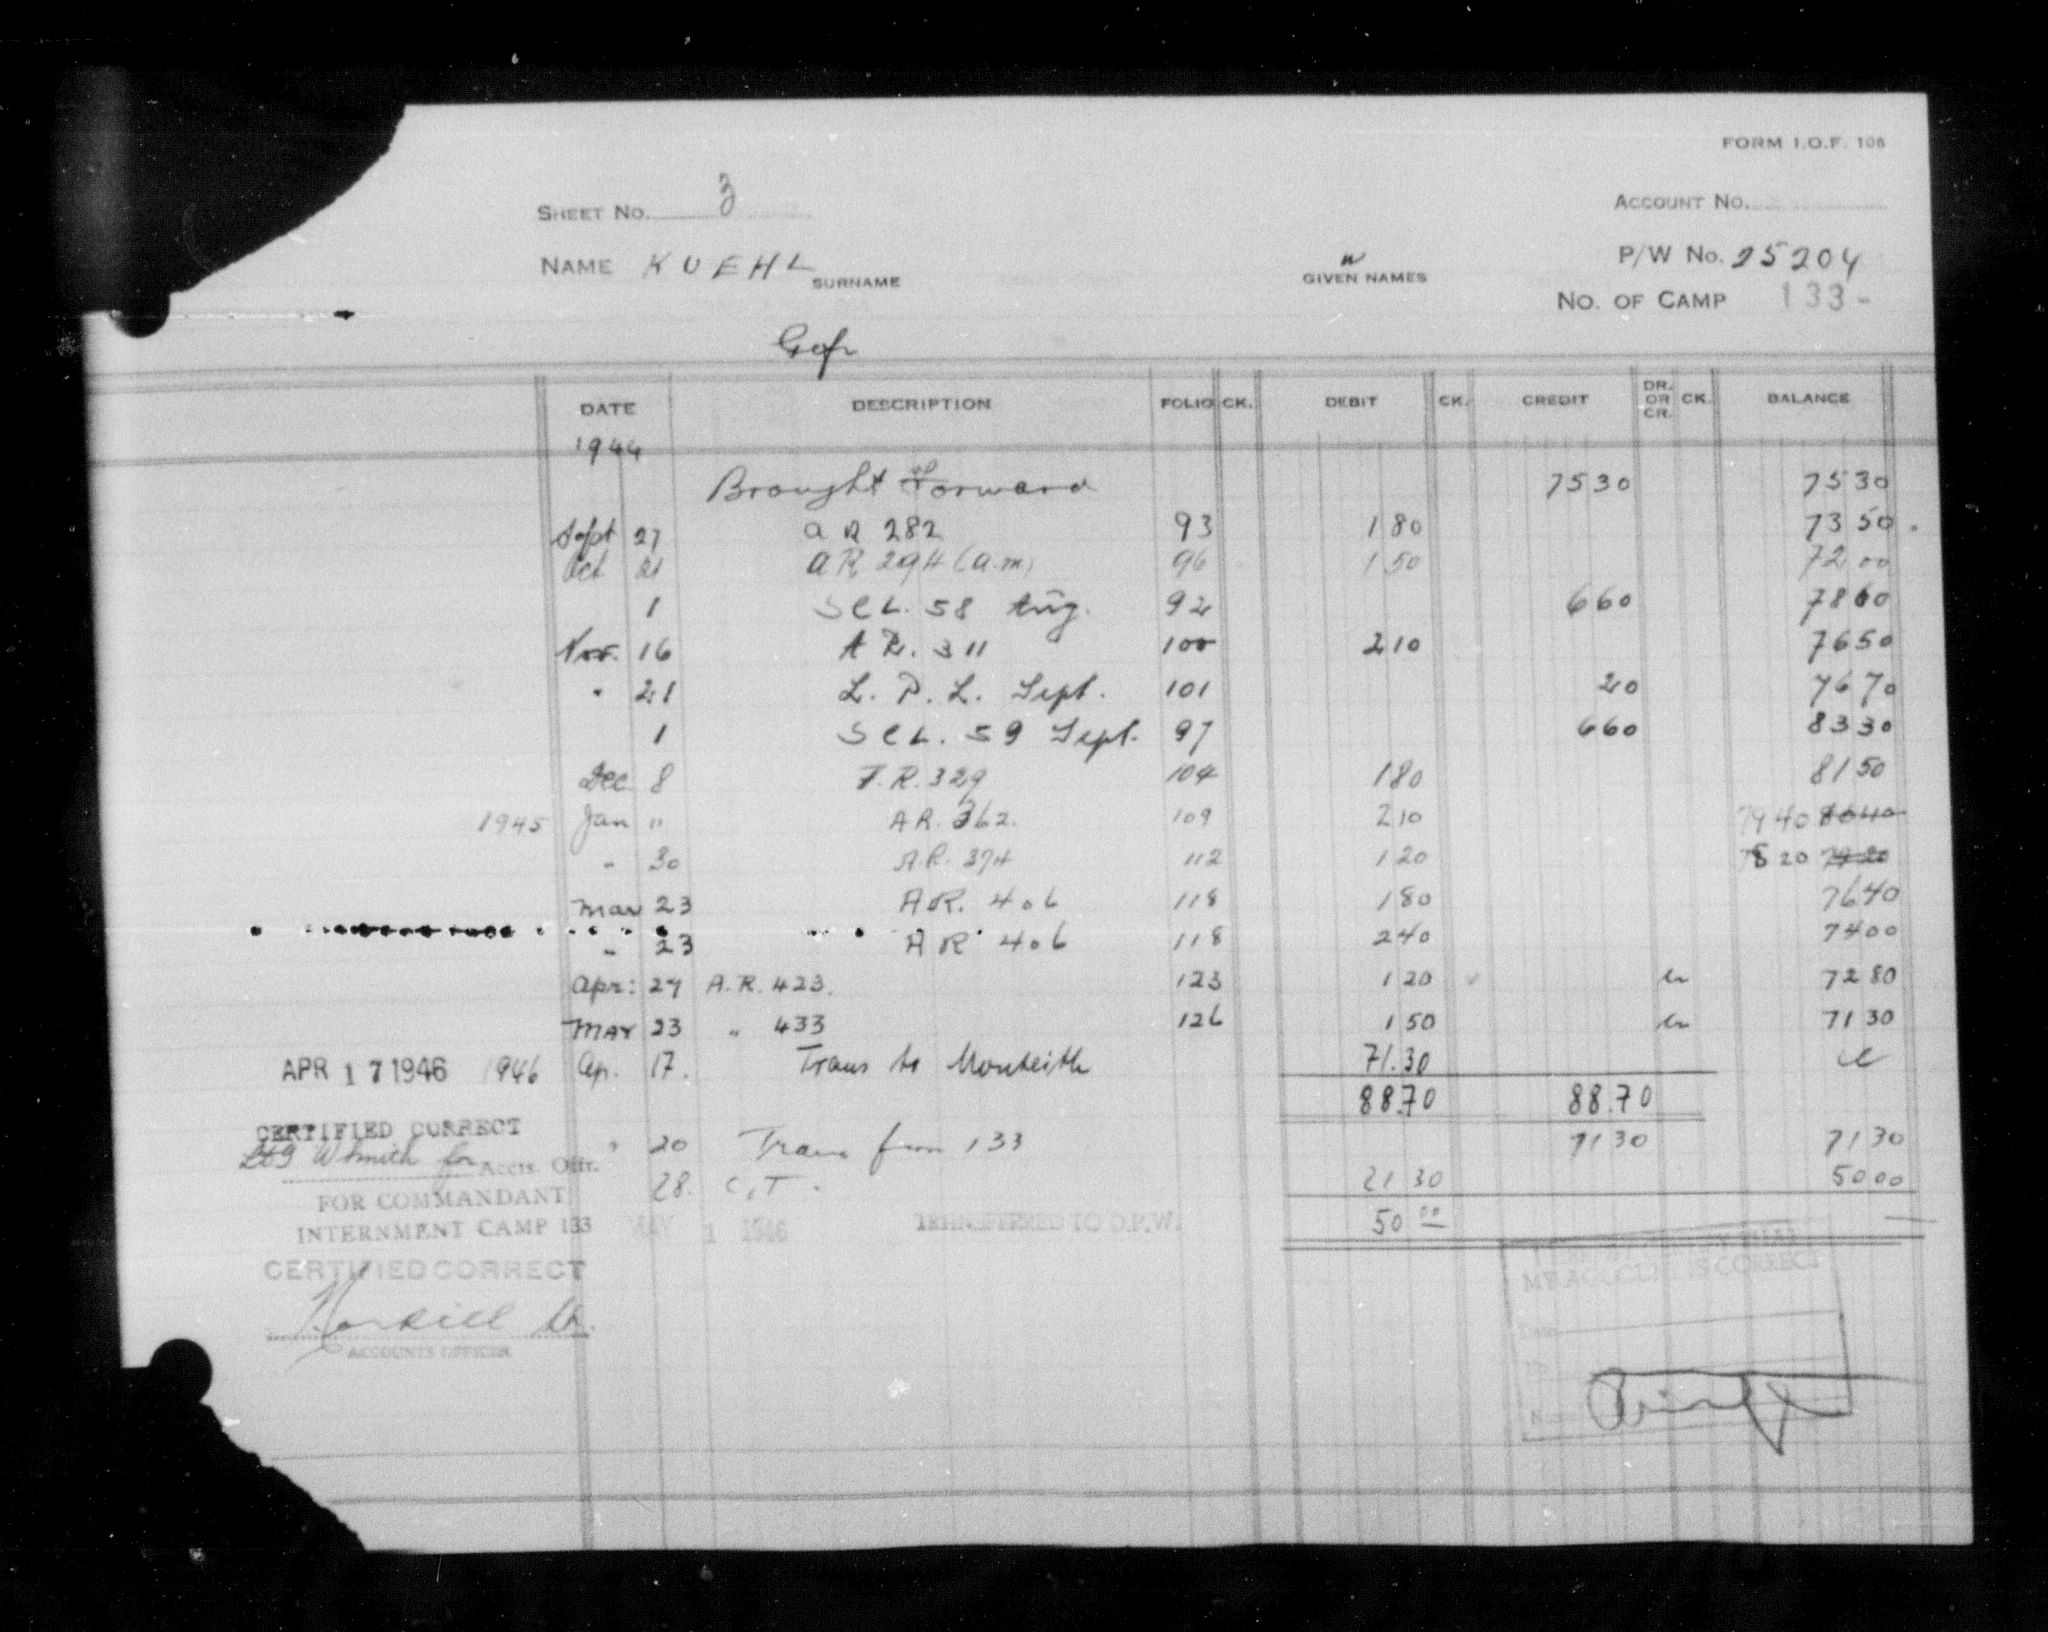 FORM I.O.F. 106
SHEET NO. 3 ACCOUNT NO.
NAME KUEHL SURNAME W GIVEN NAMES P/W No. 25204
NO. OF CAMP 133-
Gefr
DATE DESCRIPTION FOLIO CK. DEBIT CK. CREDIT DR. OR CR. CK. BALANCE
1944
Brought Forward 7530 7530
Sept 27 A R 282 93 180 7350
Oct 21 A R 294 (a.m) 96 150 7200
1 SCL. 58 Aug. 92 660 7860
Nov. 16 A R. 311 100 210 7650
" 21 L. P. L. Sept. 101 20 7670
1 SCL. 59 Sept. 97 660 8330
Dec 8 T.R. 329 104 180 8150
1945 Jan " A R. 362. 109 210 7940 8040
" 30 A R. 374 112 120 7820 7920
Mar 23 A R. 406 118 180 7640
" 23 A R 406 118 240 7400
Apr: 27 A.R. 423. 123 120 cr 7280
MAY 23 " 433 126 150 cr 7130
APR 17 1946 1946 Ap. 17. Trans to Monteith 71.30
88.70 88.70
CERTIFIED CORRECT
" 20 Trans from 133 7130 7130
W Smith for Accts. Offr.
28. C.T. 21 30 5000
FOR COMMANDANT
INTERNMENT CAMP 133 MAY 1 1946 TRANSFERRED TO D.P.W. 50 00
CERTIFIED CORRECT
MY ACCOUNT IS CORRECT
Date
ACCOUNTS OFFICER